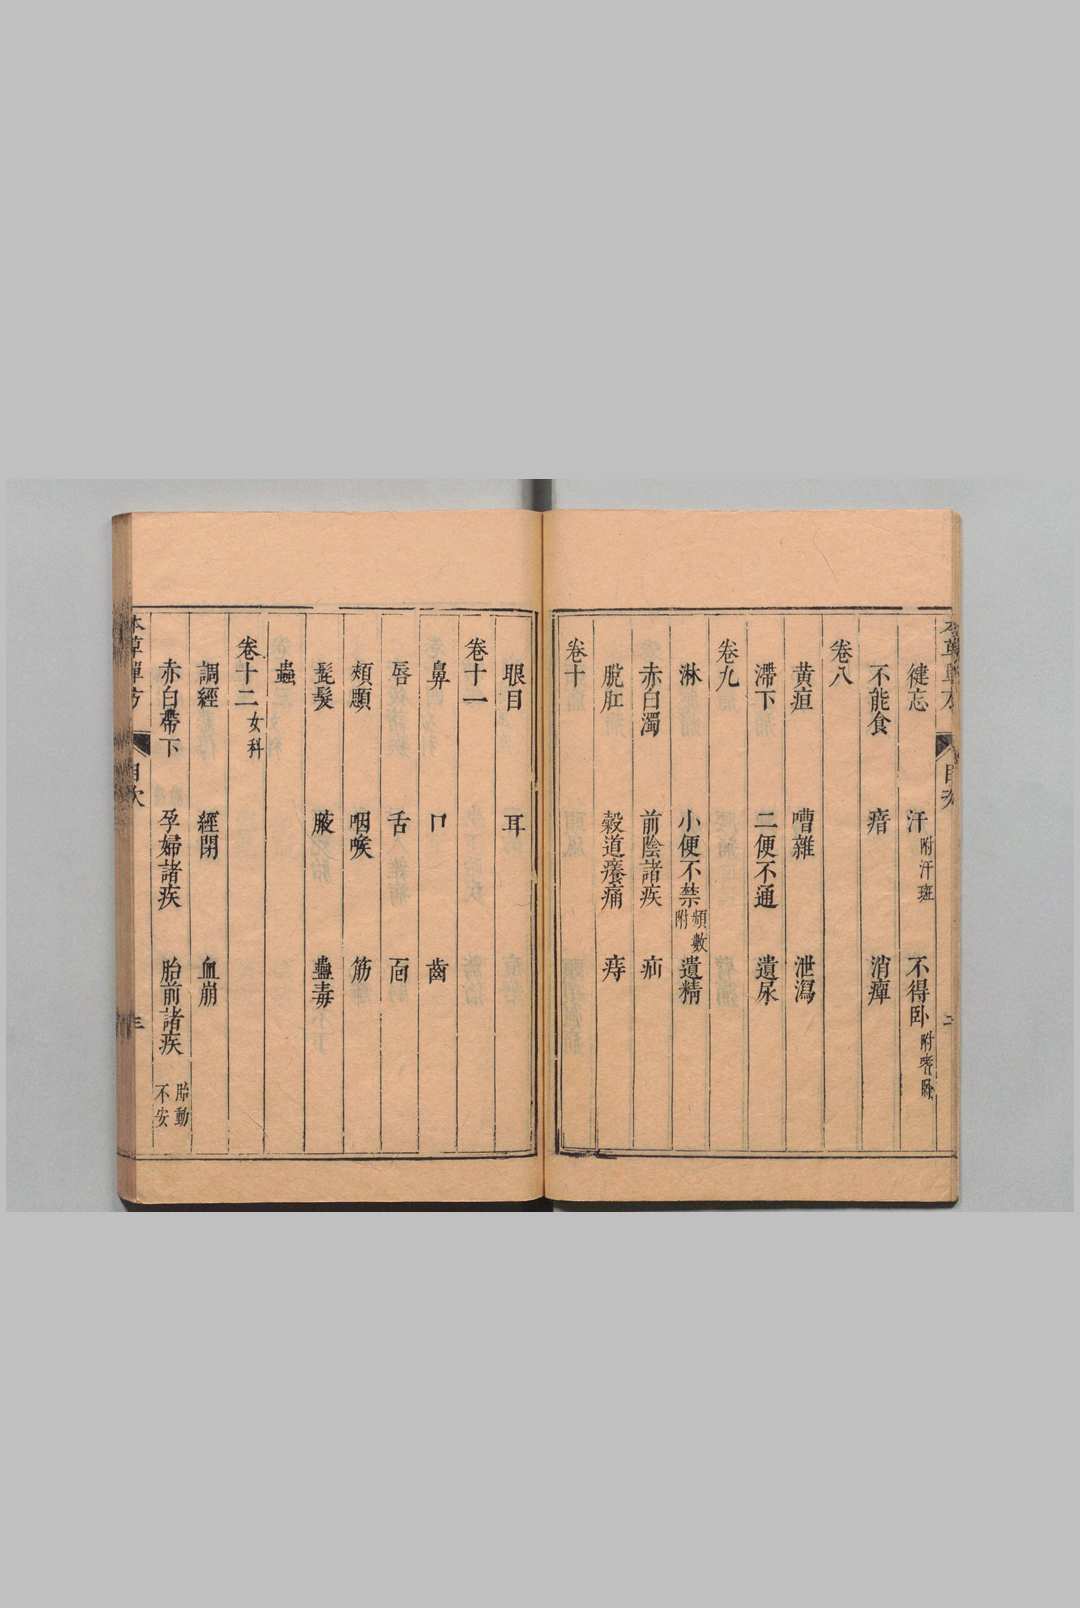 健忘　汗附汗斑　不得卧附嗜卧
不能食　瘖　消癉
卷八
黄疸　嘈雜　泄瀉
滯下　二便不通　遺尿
卷九
淋　小便不禁頻數附　遺精
赤白濁　前陰諸疾　疝
脫肛　穀道癢痛　痔
卷十
眼目　耳
卷十一
鼻　口　齒
唇　舌　面
頰頤　咽喉　筋
髭髮　腋　蠱毒
蟲
卷十二女科
調經　經閉　血崩
赤白帶下　孕婦諸疾　胎前諸疾胎動不安
本草單方　目次　二
本草單方　目次　三